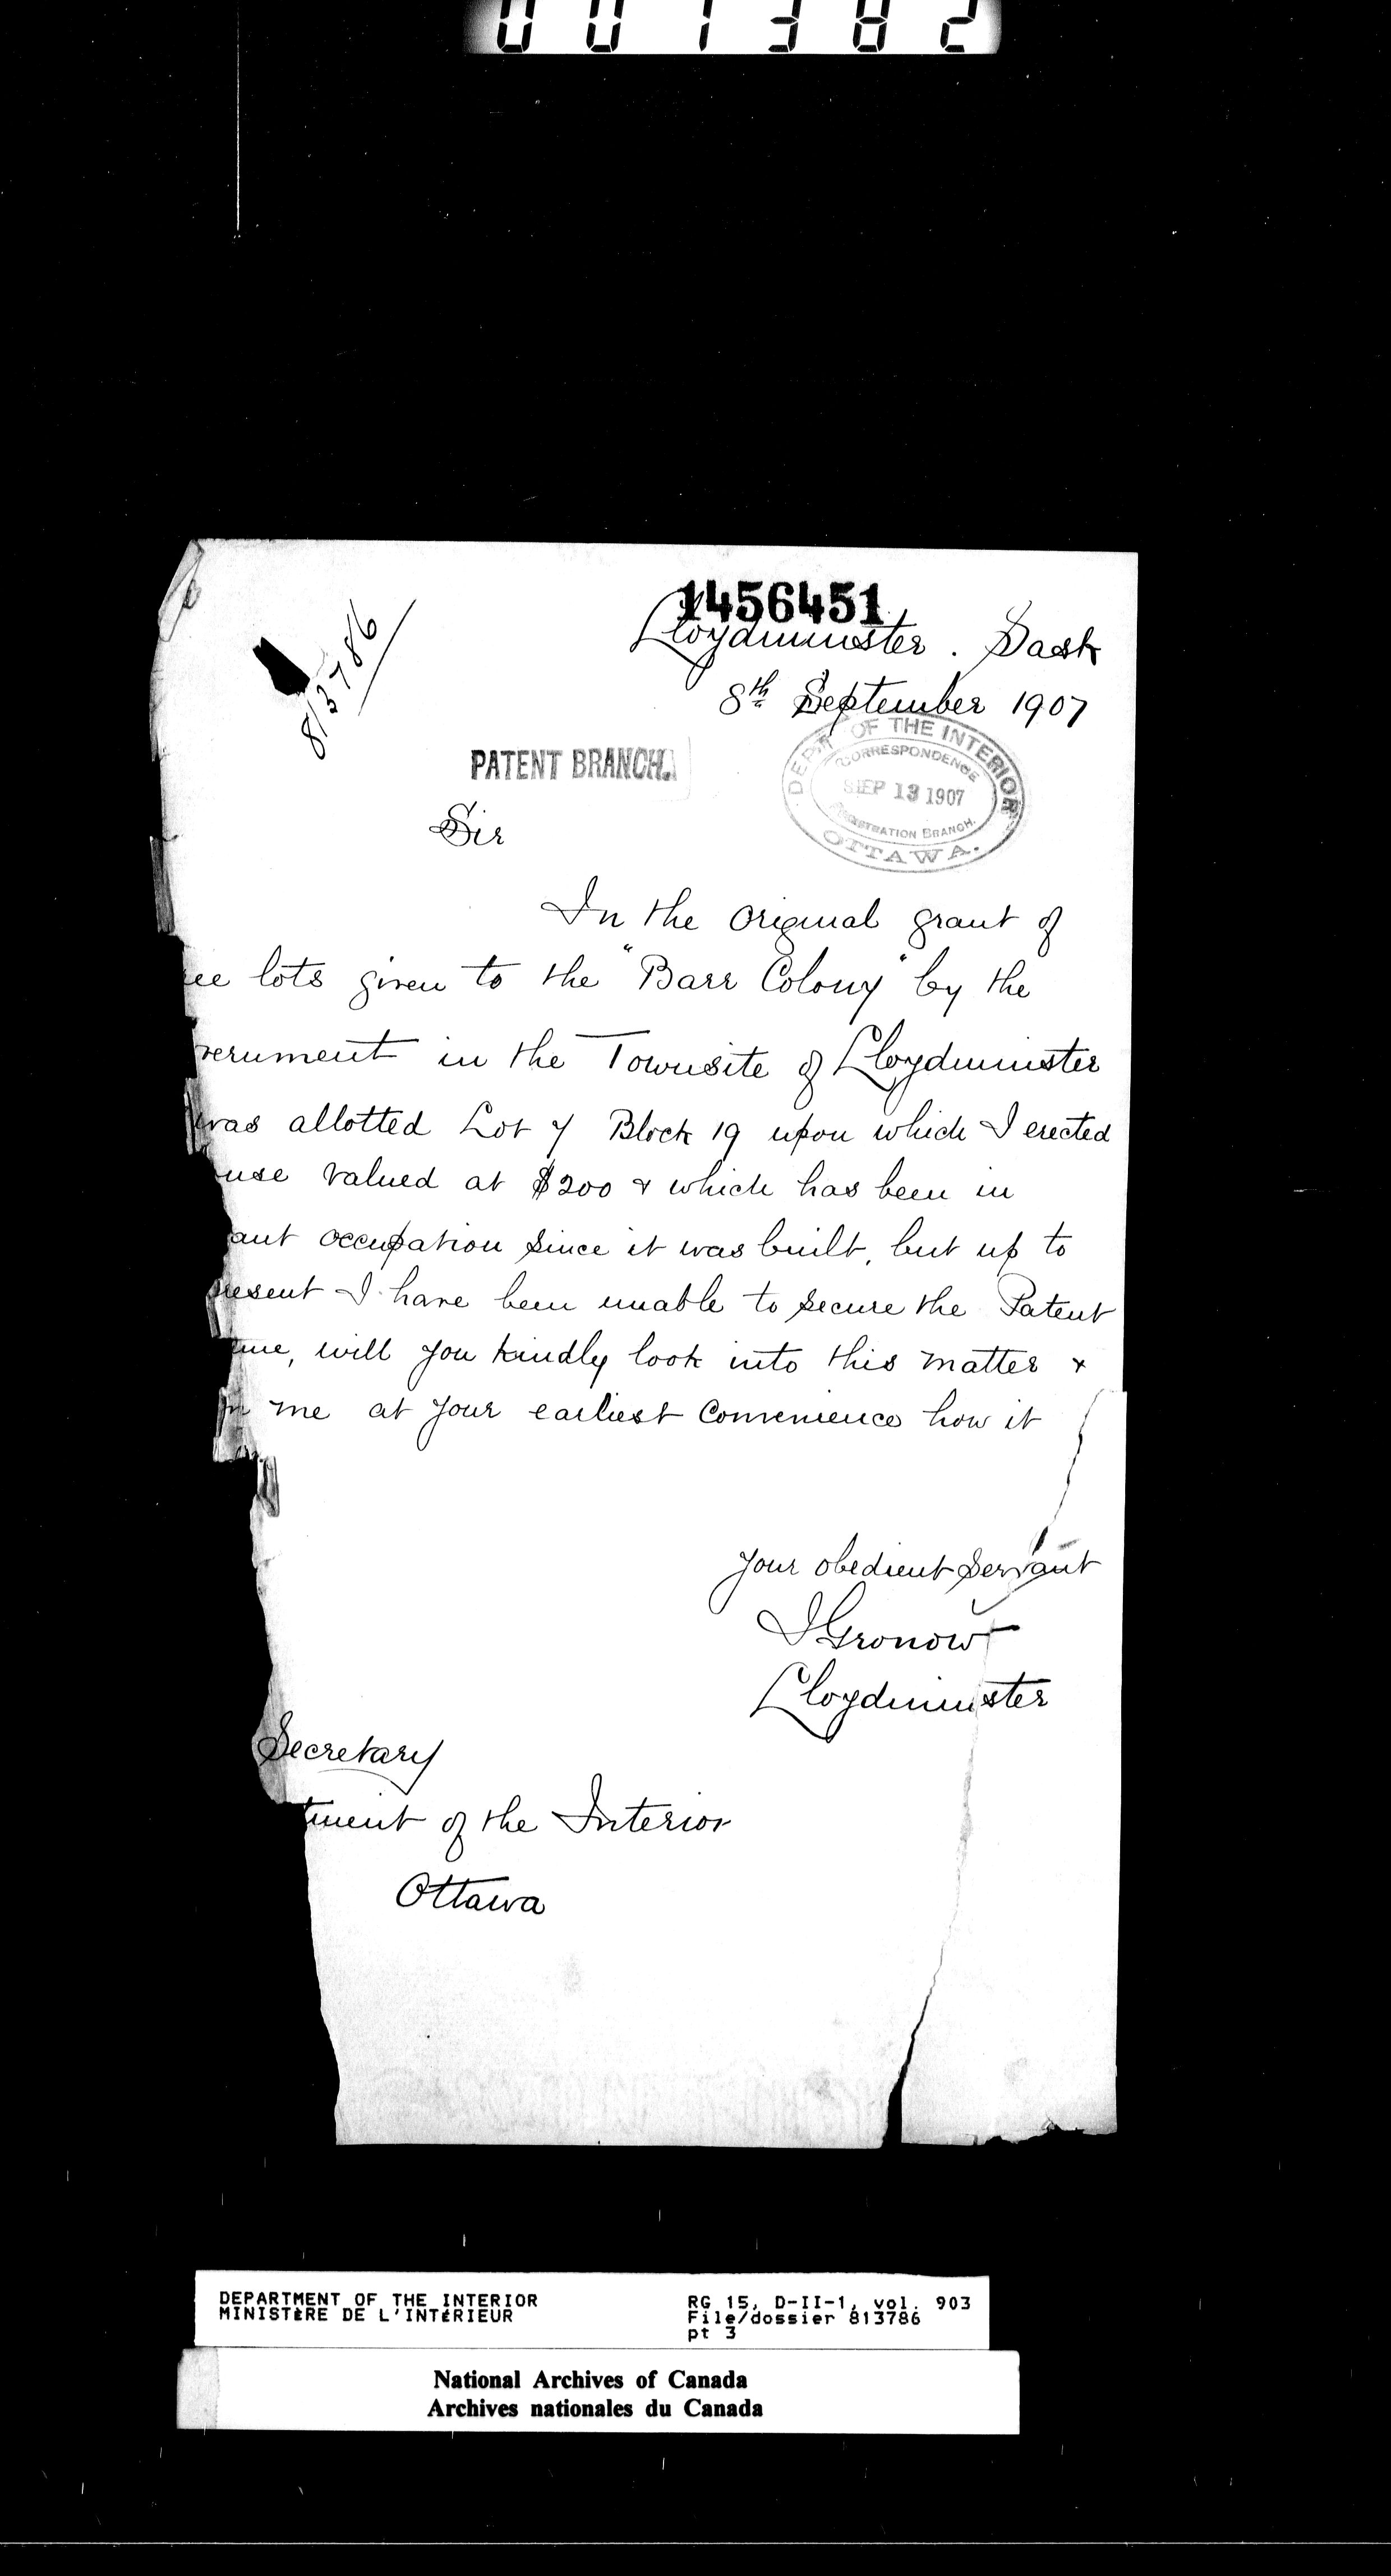 001382
1456451
Lloydminster. Sask
813786
8th September 1907
PATENT BRANCH.
DEPT OF THE INTERIOR
CORRESPONDENCE
SEP 13 1907
REGISTRATION BRANCH.
OTTAWA.
Sir
In the original grant of
ee lots given to the "Barr Colony" by the
vernment in the Townsite of Lloydminster
was allotted Lot 7 Block 19 upon which I erected
use valued at $200 & which has been in
ant occupation since it was built, but up to
present I have been unable to secure the Patent
me, will you kindly look into this matter &
me at your earliest convenience how it
your obedient servant
I Gronow
Lloydminster
Secretary
tment of the Interior
Ottawa
DEPARTMENT OF THE INTERIOR
MINISTÈRE DE L'INTÉRIEUR
RG 15, D-II-1, vol. 903
File/dossier 813786
pt 3
National Archives of Canada
Archives nationales du Canada